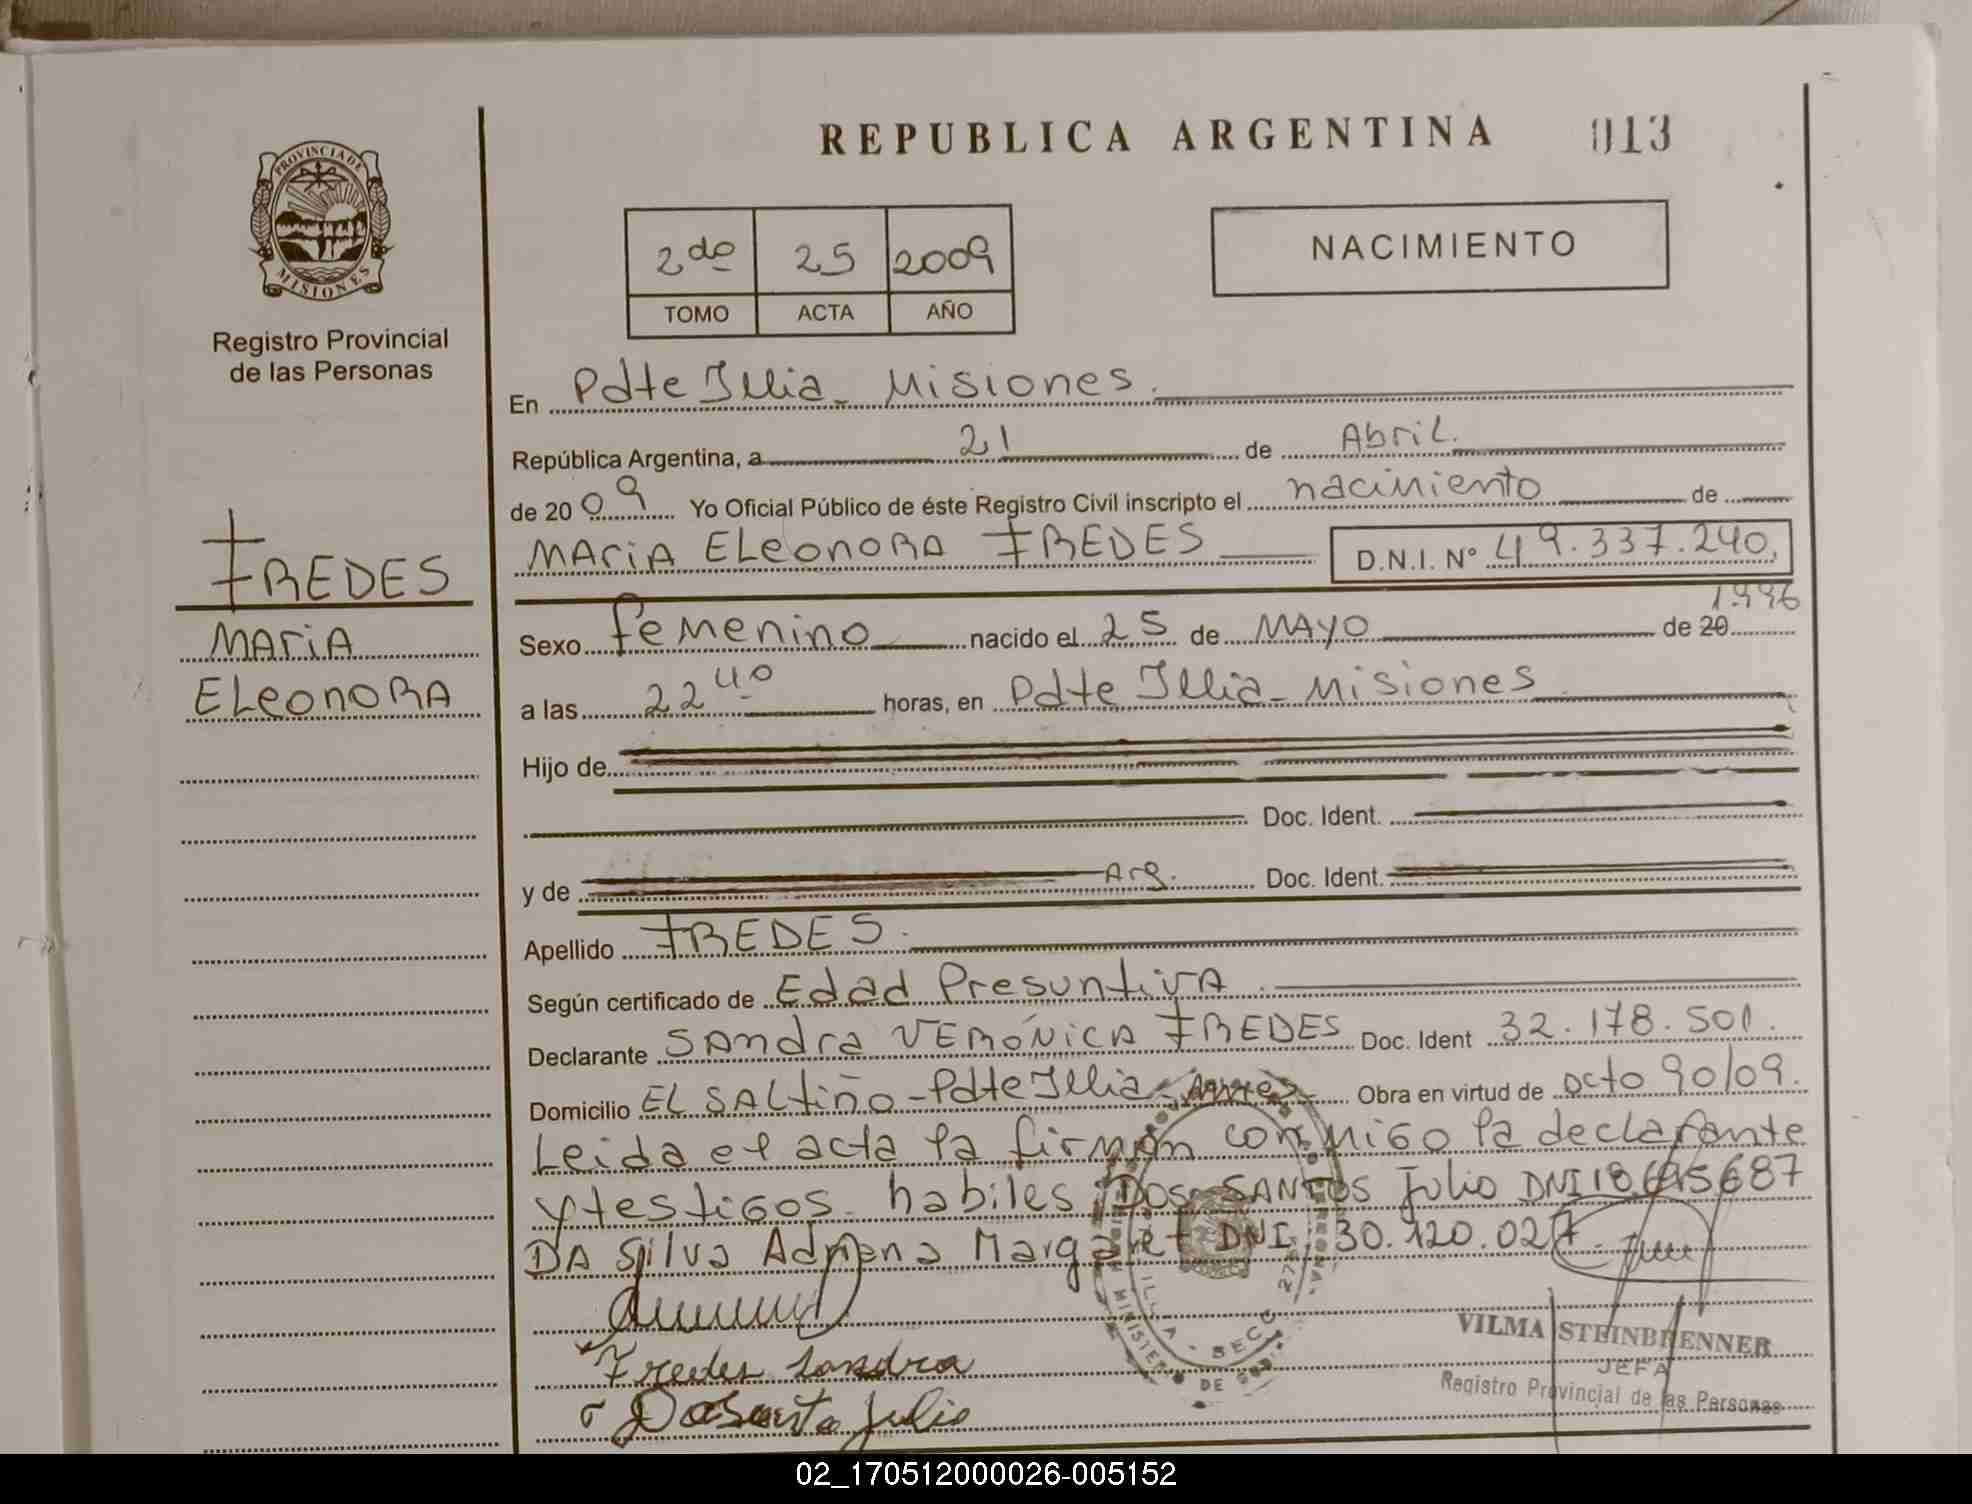 REPUBLICA ARGENTINA 013
PROVINCIA DE
MISIONES
Registro Provincial
de las Personas
2do 25 2009
TOMO ACTA AÑO
NACIMIENTO
En Pdte Illia - Misiones.
República Argentina, a 21 de Abril.
de 2009 Yo Oficial Público de éste Registro Civil inscripto el nacimiento de
FREDES
MARIA ELEONORA
MARIA ELEONORA FREDES D.N.I. Nº 49.337.240.
Sexo femenino nacido el 25 de MAYO de 20 1996
a las 22 40 horas, en Pdte Illia - Misiones
Hijo de
Doc. Ident.
y de Arg. Doc. Ident.
Apellido FREDES.
Según certificado de Edad Presuntiva.
Declarante SANDRA VERÓNICA FREDES Doc. Ident 32.178.501.
Domicilio EL SALTIÑO - Pdte Illia - Mnes Obra en virtud de Dcto 90/09.
Leida el acta la firman conmigo la declarante
y testigos habiles DOS SANTOS Julio DNI 18.695687
DA Silva Adriana Margaret DNI. 30.120.027.
Fredes Sandra
VILMA STEINBRENNER
JEFA
Registro Provincial de las Personas
Julio
02_170512000026-005152